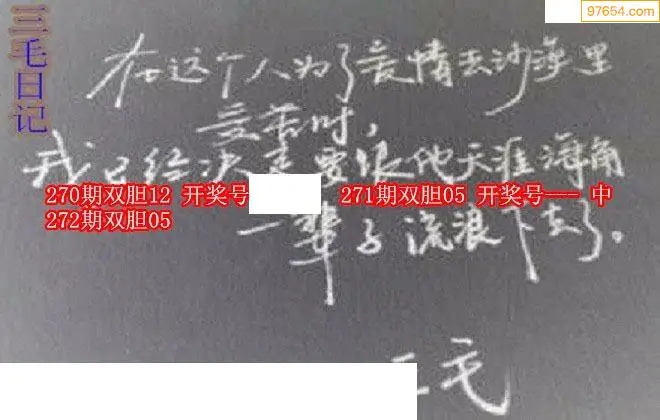 97654.com
三毛日记
在这个人为了爱情去沙漠里
受苦时，
我已经决定要跟他天涯海角
270期双胆12 开奖号 271期双胆05 开奖号--- 中
272期双胆05
一辈子流浪下去了。
三毛